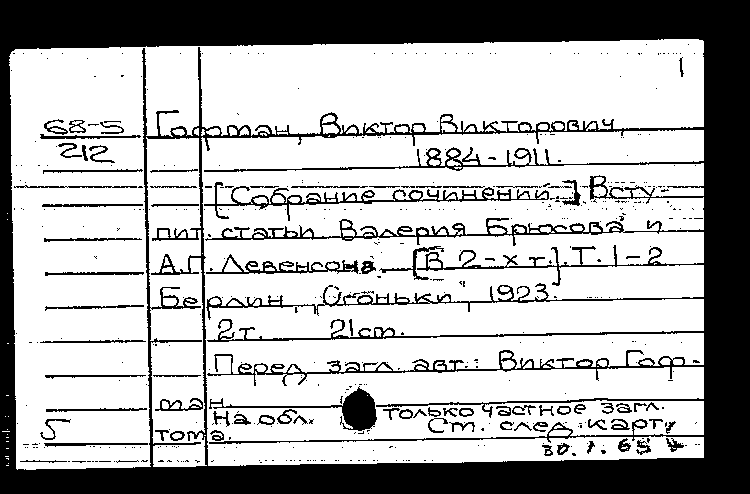 1
68-5 Гофман, Виктор Викторович,
212 1884-1911.
[Собрание сочинений.] Всту-
пит. статьи Валерия Брюсова и
А.П. Левенсона. [В 2-х т.]. Т. 1-2
Берлин, "Огоньки", 1923.
2т. 21см.
Перед загл. авт.: Виктор Гоф-
ман.
На обл. только частное загл.
5 тома. См. след. карту
30.1.65